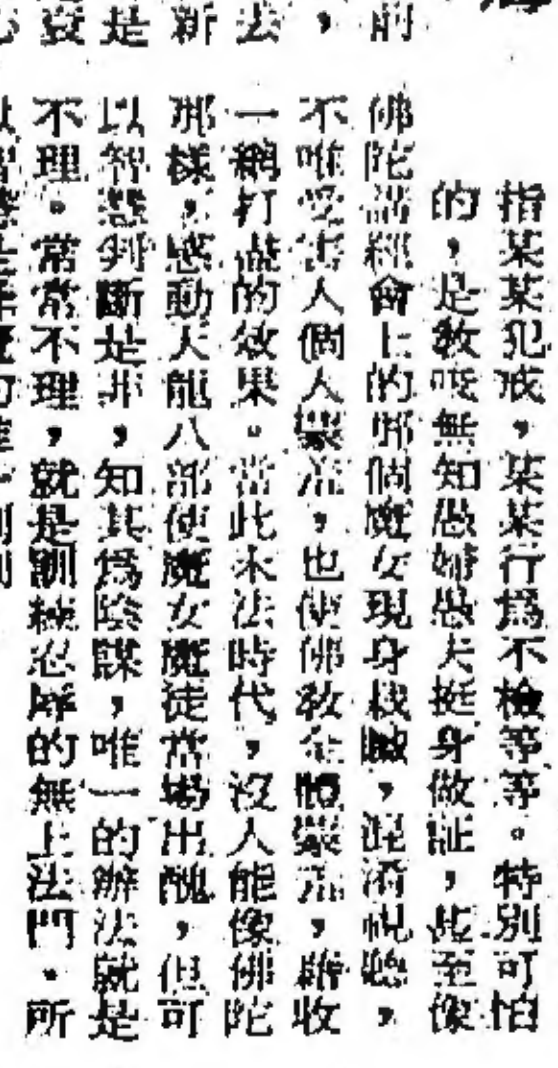 指某某犯戒，某某行爲不檢等等。特別可怕
的，是教唆無知愚婦愚夫挺身做証，甚至像
佛陀講經會上的那個魔女現身栽贓，混淆視聽，
不唯受害人個人蒙羞，也使佛教全體蒙羞，雖收
一網打盡的效果。當此末法時代，沒人能像佛陀
那樣，感動天龍八部使魔女魔徒當場出醜，但可
以智慧判斷是非，知其爲陰謀，唯一的辦法就是
不理。常常不理，就是訓練忍辱的無上法門。所
前
，
去
新
是